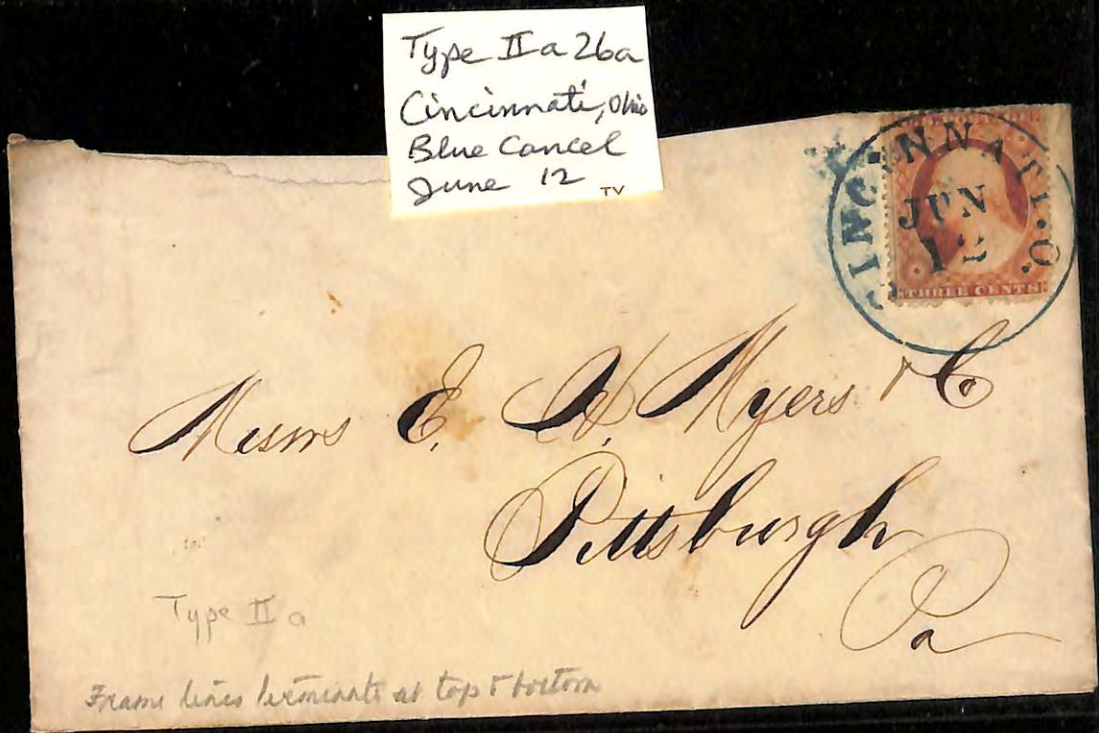 Type II a 26a
Cincinnati, Ohio
Blue Cancel
June 12
TV
CINCINNATI. O.
JUN
12
THREE CENTS
Messrs E. H. Myers & Co
Pittsburgh
Pa
Type II a
Frame lines terminate at top & bottom